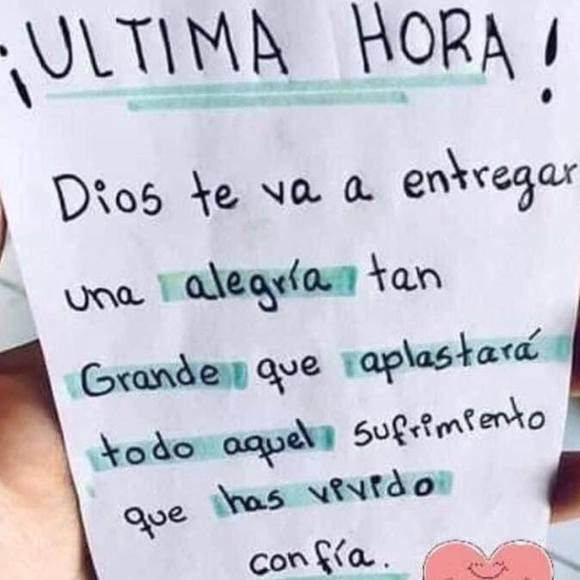 ¡ULTIMA HORA!
Dios te va a entregar
una alegría tan
Grande que aplastará
todo aquel sufrimiento
que has vivido
confía.